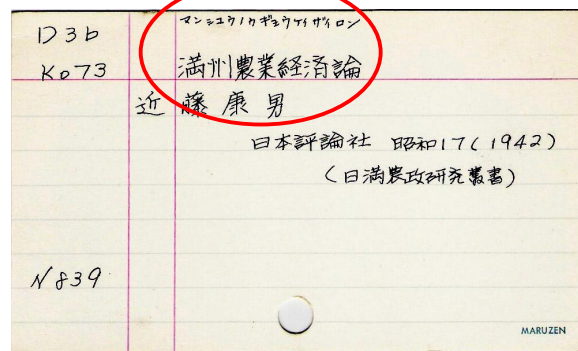 D3b
マンシユウノウギョウケイザイロン
Ko73
満州農業経済論
近藤康男
日本評論社 昭和17(1942)
(日満農政研究叢書)
N839
MARUZEN